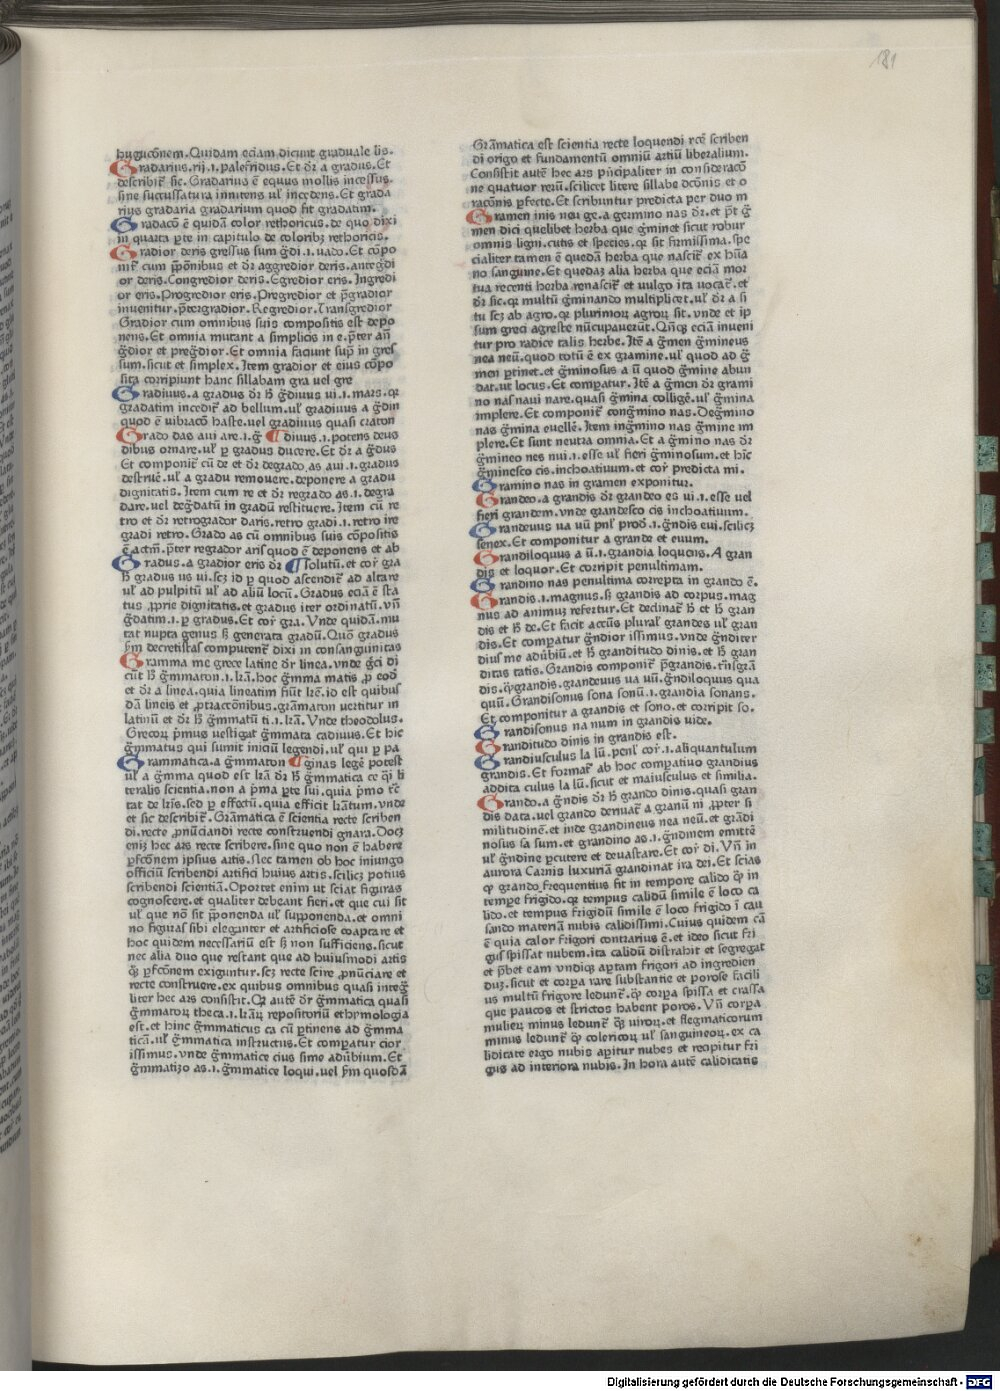 181
hugucōnem. Quidam eciam dicunt graduale lis.
Gradarius. rij. i. palefridus. Et dr̄ a gradus. Et
describit̄ sic. Gradarius ē equus mollis incessus.
sine succussatura innitens ul' incedens. Et grada
rius gradaria gradarium quod fit gradatim.
Gradacō ē quidā color rethoricus. de quo dixi
in quarta ꝑte in capitulo de coloribꝫ rethoricis.
Gradior deris gressus sum ḡdi. i. uado. Et cōpo
nit̄ cum p̄pōnibus et dr̄ aggredior deris. antegdi
or deris. Congredior deris. Egredior eris. Ingredi
or eris. Progredior eris. Pregredior et p̄gradior
inuenitur. p̄tergradior. Regredior. Transgredior
Gradior cum omnibus suis compositis est depo
nens. Et omnia mutant a simplicis in e. p̄ter an̄
ḡdior et preḡdior. Et omnia faciunt sup̄ in gres
sum. sicut et simplex. Item gradior et eius cōpo
sita corripiunt hanc sillabam gra uel gre
Gradiuus. a gradus dr̄ h̄ ḡdiuus ui. i. mars. qꝛ
gradatim incedit̄ ad bellum. ul' gradiuus a ḡdin
quod ē uibracō haste. uel gradiuus quasi craton
Grado das aui are. i. ḡ ¶ diuus. i. potens deus
dibus ornare. ul' ꝑ gradus ducere. Et dr̄ a ḡdus
Et componit̄ cū de et dr̄ degrado. as aui. i. gradus
destruē. ul' a gradu remouere. deponere a gradu
dignitatis. Item cum re et dr̄ regrado as. i. degra
dare. uel deḡdatū in gradū restituere. Item cū re
tro et dr̄ retrogrador daris. retro gradi. i. retro ire
gradi retro. Grado as cū omnibus suis cōpositis
ē actiū. p̄ter regrador aris quod ē deponens et ab
Gradus. a gradior eris dr̄ ¶ solutū. et cor̄ gra
h̄ gradus us ui. scꝫ id ꝑ quod ascendit̄ ad altare
ul' ad pulpitū ul' ad aliū locū. Gradus eciā ē sta
tus ꝓprie dignitatis. et gradus iter ordinatū. vn̄
ḡdatim. i. ꝑ gradus. Et cor̄ gra. Vnde quidā. mu
tat nupta genus s; generata gradū. Quō gradus
s̄m decretistas computent̄ dixi in consanguinitas
Gramma me grece latine dr̄ linea. vnde ḡci di
cūt h̄ ḡmmaton. i. lr̄ā. hoc ḡmma matis ꝓ eod
et dr̄ a linea. quia lineatim fiūt lr̄e. id est quibus
dā lineis et ꝓtractōnibus. grāmaton uertitur in
latinū et dr̄ h̄ ḡmmatū ti. i. lr̄ā. Vnde theodolus.
Grecoꝝ p̄mus uestigat ḡmmata cadmus. Et hic
ḡmmatus qui sumit iniciū legendi. ul' qui ꝑ pa
Grammatica. a ḡmmaton ¶ ginas legē potest
ul' a ḡmma quod est lr̄ā dr̄ h̄ ḡmmatica ce qi li
teralis scientia. non a p̄ma ꝑte sui. quia p̄mo tc̄
tat de lr̄is. sed ꝑ effectū. quia efficit lr̄atum. vnde
et sic describit̄. Grāmatica ē scientia recte scriben
di. recte ꝓnūciandi recte construendi gnara. Docꝫ
enim hec ars recte scribere. sine quo non ē habere
ꝑfcōnem ipsius artis. Nec tamen ob hoc iniungo
officiū scribendi artifici huius artis. scilicꝫ potius
scribendi scientiā. Oportet enim ut sciat figuras
cognoscere. et qualiter debeant fieri. et que cui sit
ul' que nō sit p̄ponenda ul' supponenda. et omni
no figuras sibi eleganter et artificiose coaptare et
hoc quidem necessariū est s; non sufficiens. sicut
nec alia duo que restant que ad huiusmodi artis
qꝫ ꝑfcōnem exiguntur. scꝫ recte scire ꝓnūciare et
recte construere. ex quibus omnibus quasi inteḡ
liter hec ars consistit. Qꝛ autē dr̄ ḡmmatica quasi
ḡmmatoꝝ theca. i. lr̄aꝝ repositoriū ethymologia
est. et hinc ḡmmaticus ca cū ꝑtinens ad ḡmma
ticā. ul' ḡmmatica instructus. Et comꝑatur cior
issimus. vnde ḡmmatice cius sime adūbium. Et
ḡmmatizo as. i. ḡmmatice loqui. uel s̄m quosdā
Grāmatica est scientia recte loquendi rcē scriben
di origo et fundamentū omniū artiū liberalium.
Consistit autē hec ars p̄ncipaliter in consideracō
ne quatuor reiū. scilicet litere sillabe dcōnis et o
racōnis ꝑfecte. Et scribuntur predicta per duo m
Gramen inis neu ge. a germino nas dr̄. et p̄t ḡ
men dici quelibet herba que ḡminet sicut robur
omnis ligni. cutis et species. qꝛ sit firmissima. spe
cialiter tamen ē quedā herba que nascit̄ ex hūa
no sanguine. Et quedaꝫ alia herba que eciā mor
tua recenti herba renascit̄ et uulgo ita uocat̄. et
dr̄ sic. qꝛ multū ḡminando multiplicet. ul' dr̄ a si
tu scꝫ ab agro. qꝛ plurimoꝝ agroꝝ sit. vnde et ip
sum greci agreste nūcupauerūt. Qn̄qꝫ eciā inueni
tur pro radice talis herbe. Itē a ḡmen ḡmineus
nea neū. quod totū ē ex gramine. ul' quod ad ḡ
men ꝑtinet. et ḡminosus a ū quod ḡmine abun
dat. ut locus. Et comꝑatur. Itē a ḡmen dr̄ grami
no nas naui nare. quasi ḡmina colligē. ul' ḡmina
implere. Et componit̄ conḡmino nas. Deḡmino
nas ḡmina euellē. Item inḡmino nas ḡmine im
plere. Et sunt neutra omnia. Et a ḡmino nas dr̄
ḡmineo nes nui. i. esse ul' fieri ḡminosum. et hīc
ḡminesco cis. inchoatiuum. et cor̄ predicta mi.
Gramino nas in gramen exponitur.
Grandeo. a grandis dr̄ grandeo es ui. i. esse uel
fieri grandem. vnde grandesco cis inchoatiuum.
Grandeuus ua uū pnl' prod̄. i. ḡndis eui. scilicꝫ
senex. Et componitur a grande et euum.
Grandiloquus a ū. i. grandia loquens. A gran
dis et loquor. Et corripit penultimam.
Grandino nas penultima correpta in grando ē.
Grandis. i. magnus. s; grandis ad corpus. mag
nus ad animuꝫ refertur. Et declinat̄ h̄ et h̄ gran
dis et h̄ de. Et facit accūs plural' grandes ul' gran
dis. Et comꝑatur ḡndior issimus. vnde ḡnditer
dius me adūbiū. et h̄ granditudo dinis. et h̄ gran
ditas tatis. Grandis componit̄ p̄grandis. tn̄sgrā
dis. qꝫgrandis. grandeuus ua uū. ḡndiloquus qua
quū. Grandisonus sona sonū. i. grandia sonans.
Et componitur a grandis et sono. et corripit so.
Grandisonus na num in grandis uide.
Granditudo dinis in grandis est.
Grandiusculus la lū. penl' cor̄. i. aliquantulum
grandis. Et format̄ ab hoc comꝑatiuo grandius
addita culus la lū. sicut et maiusculus et similia.
Grando. a ḡndis dr̄ h̄ grando dinis. quasi gran
dis data. uel grando deriuat̄ a granū ni ꝓpter si
militudinē. et inde grandineus nea neū. et grādi
nosus sa sum. et grandino as. i. ḡndinem emittē
ul' ḡndine ꝑcutere et deuastare. Et cor̄ di. Vn̄ in
aurora Carnis luxuriā grandinat ira dei. Et scias
qꝫ grando frequentius fit in tempore calido qꝫ in
tempe frigido. qꝛ tempus calidū simile ē loco ca
lido. et tempus frigidū simile ē loco frigido ī cau
sando materiā nubis calidissimi. Cuius quidem cā
ē quia calor frigori contrarius ē. et ideo sicut fri
gus spissat nubem. ita calidū distrahit et segregat
et p̄bet eam vndiqꝫ aꝑtam frigori ad ingredien
duꝫ. sicut et corꝑa rare substantie et porose facili
us multū frigore ledunt̄. qꝫ corꝑa spissa et crassa
que paucos et strictos habent poros. Vn̄ corꝑa
mulieꝝ minus ledunt̄ qꝫ uiroꝝ. et flegmaticorum
minus ledunt̄ qꝫ colericoꝝ ul' sanguineoꝝ. ex ca
liditate ergo nubis aꝑitur nubes et recipitur fri
gus ad interiora nubis. In hora autē caliditatis
Digitalisierung gefördert durch die Deutsche Forschungsgemeinschaft - DFG